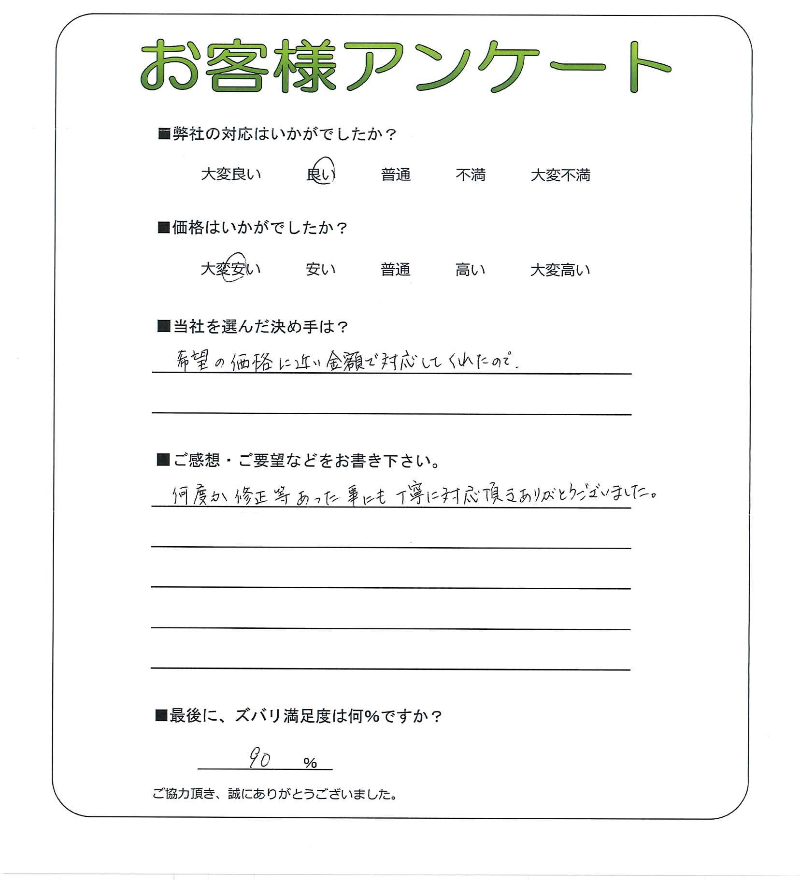 お客様アンケート
■弊社の対応はいかがでしたか？
大変良い 良い 普通 不満 大変不満
■価格はいかがでしたか？
大変安い 安い 普通 高い 大変高い
■当社を選んだ決め手は？
希望の価格に近い金額で対応してくれたので.
■ご感想・ご要望などをお書き下さい。
何度か修正等あった事にも丁寧に対応頂きありがとうございました。
■最後に、ズバリ満足度は何%ですか？
90 %
ご協力頂き、誠にありがとうございました。